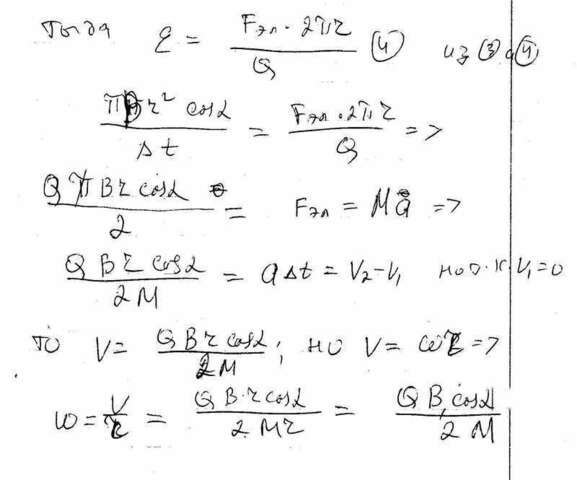 Тогда ε = Fэл · 2πr / Q (4) из (3) и (4)
πBr² cosα / Δt = Fэл · 2πr / Q =>
QπBr cosα / 2 = Fэл = Ma =>
QBr cosα / 2M = aΔt = V₂-V₁ но т.к. V₁=0
то V = QBr cosα / 2M ; но V = ωr =>
ω = V / r = QB·r cosα / 2Mr = QB cosα / 2M